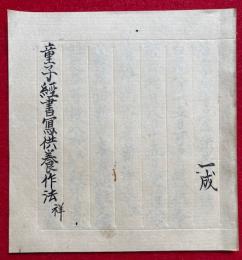 童子經書寫供養作法 祥
一成